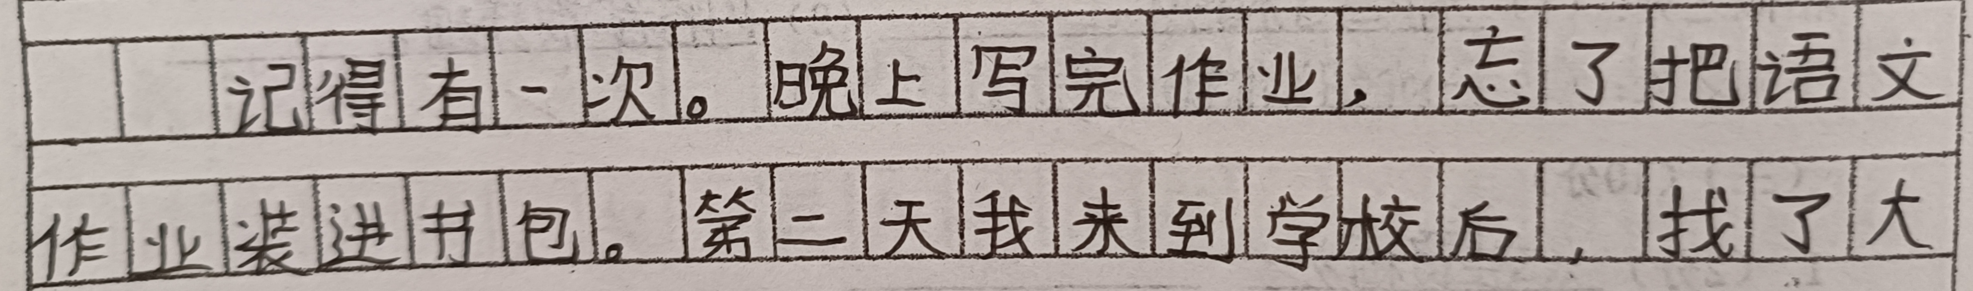 记得有一次。晚上写完作业，忘了把语文
作业装进书包。第二天我来到学校后，找了大